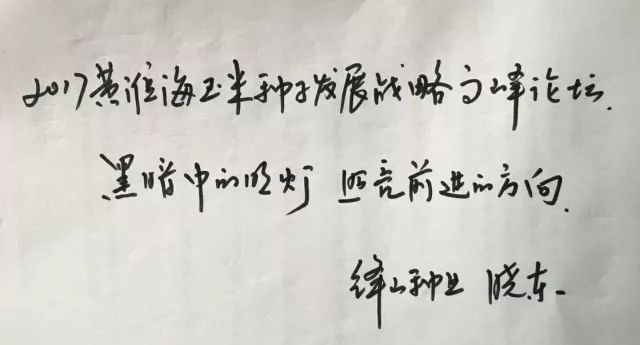 2017黄淮海玉米种子发展战略高峰论坛.
黑暗中的明灯 照亮前进的方向.
山种业 晓东